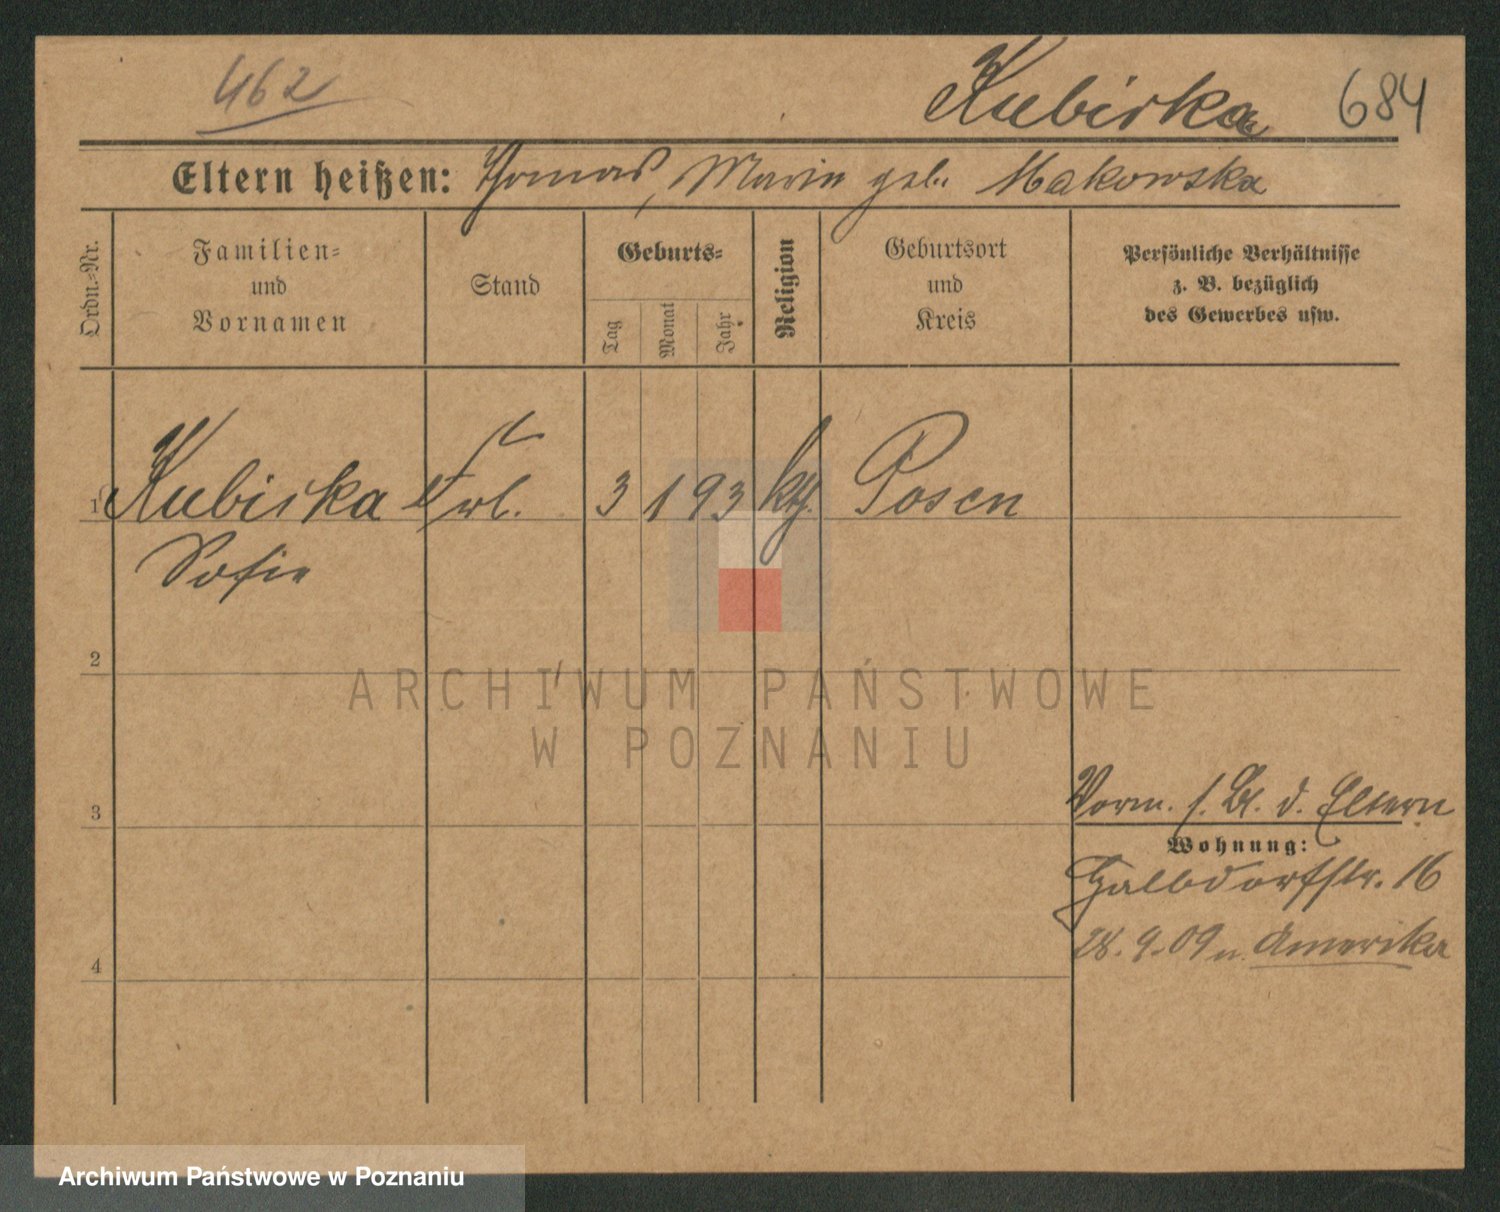 462
Kubiska 684
Eltern heißen: Thomas, Marie geb. Makowska
Ordn.-Nr.
Familien-
und
Vornamen
Stand
Geburts-
Tag
Monat
Jahr
Religion
Geburtsort
und
Kreis
Persönliche Verhältnisse
z. B. bezüglich
des Gewerbes usw.
1 Kubiska Frl. 3 1 93 kth. Posen
Sofie
2
ARCHIWUM PAŃSTWOWE
W POZNANIU
3
Vorm. s. Bl. d. Eltern
Wohnung:
Halbdorfstr. 16
28.9.09 n. Amerika
4
Archiwum Państwowe w Poznaniu